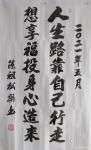 二〇二一年五月
人生路靠自己行走
想享福投身心造来
陈祖松撰书